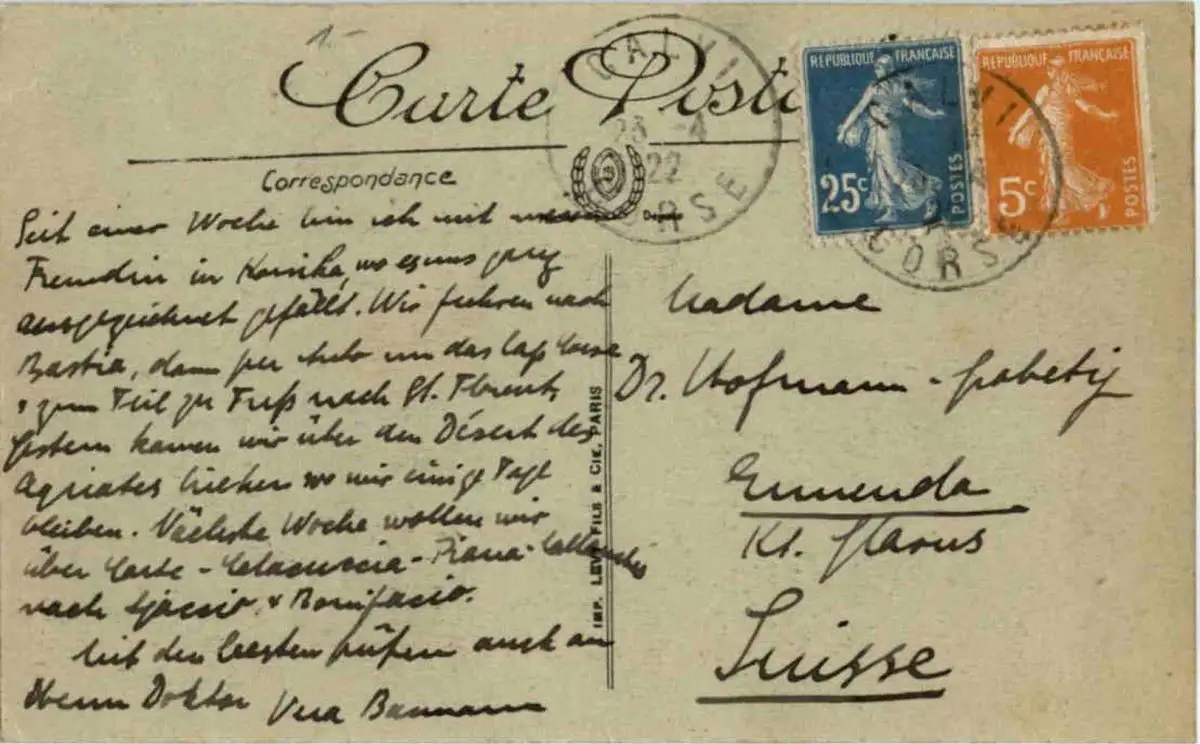 1.-
Carte Posta
Correspondance
CALVI
23 -4
22
CORSE
REPUBLIQUE FRANÇAISE
25c
POSTES
REPUBLIQUE FRANÇAISE
5c
POSTES
CALVI
CORSE
Seit einer Woche bin ich mit meiner
Freundin in Korsika, wo es uns ganz
ausgezeichnet gefällt. Wir fuhren nach
Bastia, dann per Auto um das Cap Corse
& zum Teil zu Fuß nach St. Florent.
Gestern kamen wir über den Désert des
Agriates hieher, wo wir einige Tage
bleiben. Nächste Woche wollen wir
über Corte - Calacuccia - Piana
nach Ajaccio & Bonifacio.
Mit den besten Grüßen auch an
Herrn Doktor
Vera Baumann
IMP. LEVY FILS & CIE, PARIS
Madame
Dr. Hofmann -
Ennenda
Kt. Glarus
Suisse